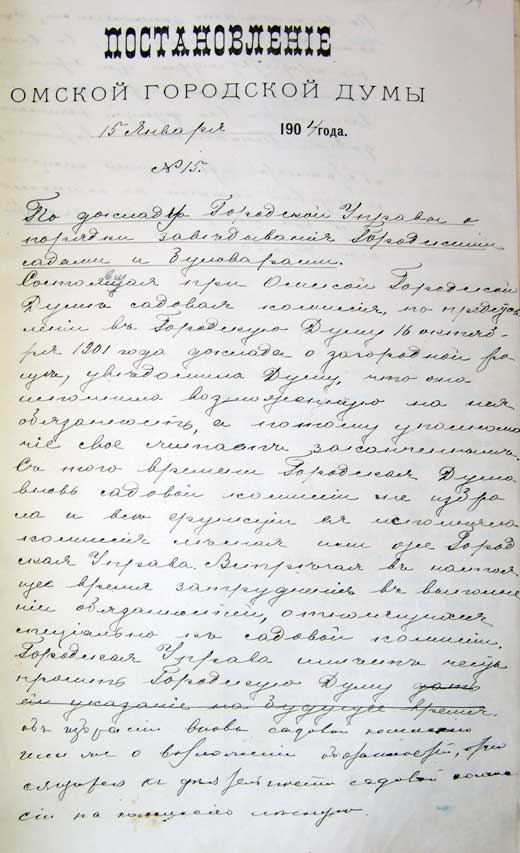 ПОСТАНОВЛЕНІЕ
ОМСКОЙ ГОРОДСКОЙ ДУМЫ
15 Января 1904 года.
№ 15.
По докладу Городской Управы о
порядке завѣдыванія Городскими
садами и бульварами.
Состоящая при Омской Городской
Думѣ садовая комиссія, по представ
леніи въ Городскую Думу 16 октяб
ря 1901 года доклада о загородной ро
щѣ, увѣдомила Думу, что она
исполнила возложенную на нея
обязанность, а потому уполномо
чіе свое считаетъ законченнымъ.
Съ того времени Городская Дума
вновь садовой комиссіи не избра
ла и всѣ функціи ея исполняла
комиссія или же Город
ская Управа. Встрѣчая въ настоя
щее время затрудненія въ выполне
ніи обязанностей, относящихся
спеціально къ садовой комиссіи,
Городская Управа имѣетъ честь
просить Городскую Думу дать
ей указание на будущее время.
объ избраніи вновь садовой комиссіи
или же о возложеніи обязанностей, отно
сящихся къ дѣятельности садовой комис
сіи на комиссію